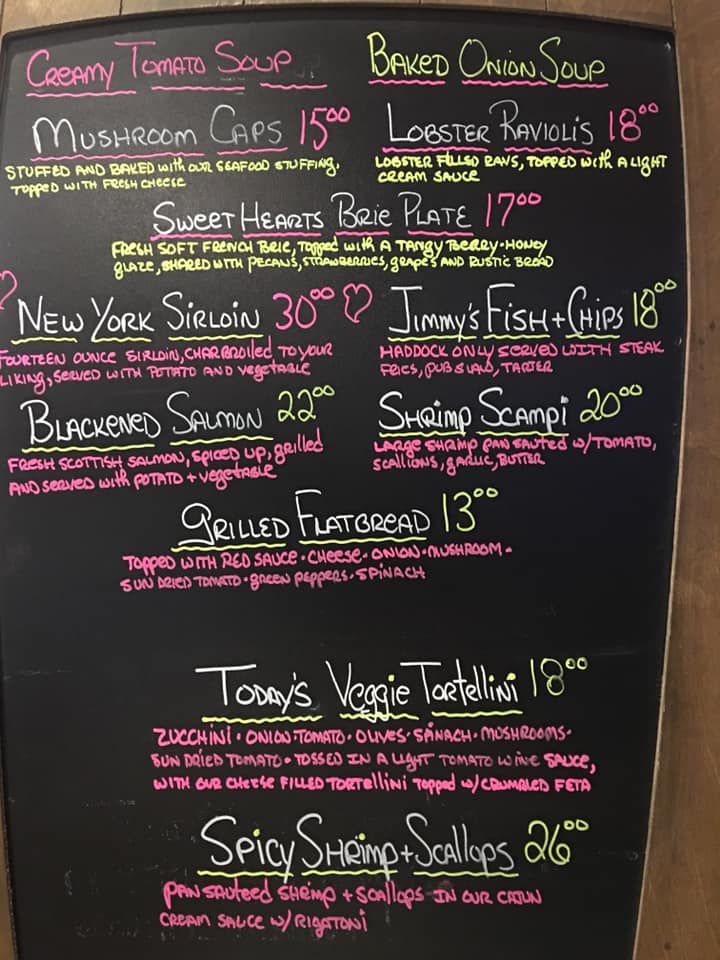 Creamy Tomato Soup
Baked Onion Soup
Mushroom Caps 15.00
Stuffed and baked with our seafood stuffing,
topped with fresh cheese
Lobster Raviolis 18.00
Lobster filled ravs, topped with a light
cream sauce
Sweet Hearts Brie Plate 17.00
Fresh soft French Brie, topped with a tangy berry-honey
glaze, shared with pecans, strawberries, grapes and rustic bread
New York Sirloin 30.00
Fourteen ounce sirloin, charbroiled to your
liking, served with potato and vegetable
Jimmy's Fish + Chips 18.00
Haddock only served with steak
fries, pub slaw, tarter
Blackened Salmon 22.00
Fresh Scottish salmon, spiced up, grilled
and served with potato + vegetable
Shrimp Scampi 20.00
Large shrimp pan sauted w/tomato,
scallions, garlic, butter
Grilled Flatbread 13.00
Topped with red sauce · cheese · onion · mushroom ·
sun dried tomato · green peppers · spinach
Today's Veggie Tortellini 18.00
Zucchini · onion · tomato · olives · spinach · mushrooms ·
sun dried tomato · tossed in a light tomato wine sauce,
with our cheese filled tortellini topped w/ crumbled feta
Spicy Shrimp + Scallops 26.00
Pan sauteed shrimp + scallops in our cajun
cream sauce w/ rigatoni